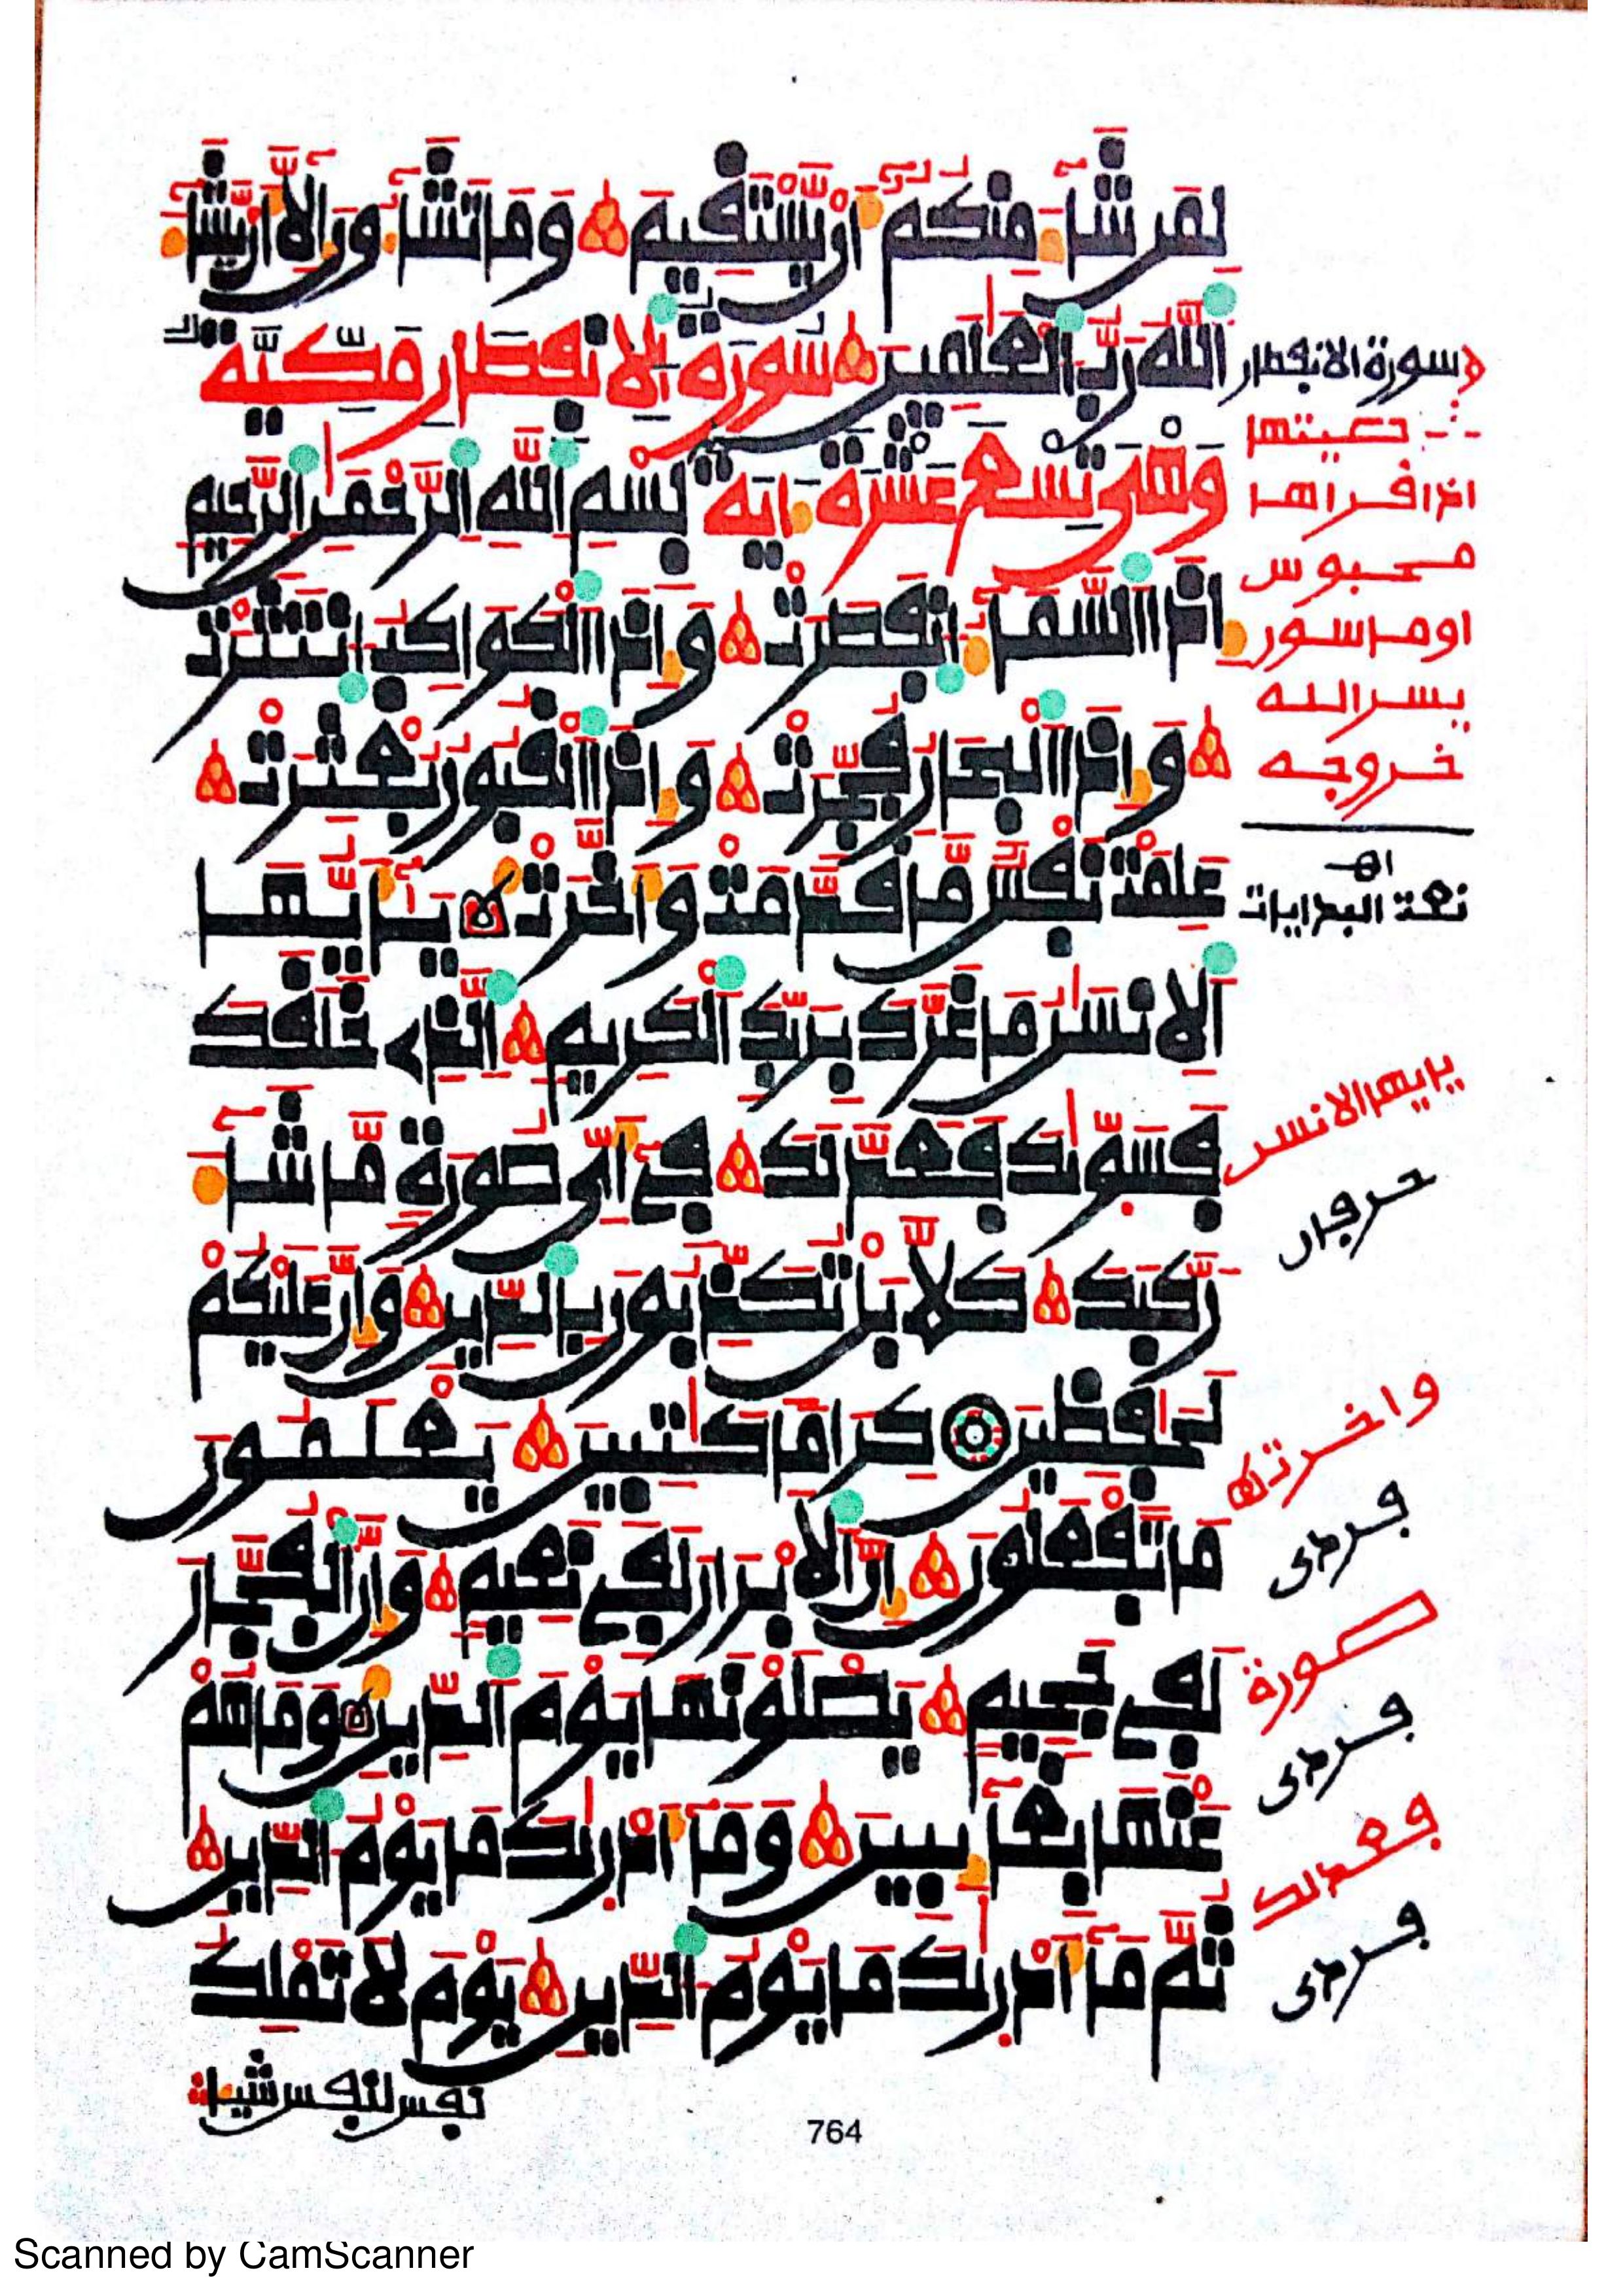 لمن شاء منكم أن يستقيم وما تشاءون إلا أن يشاء
الله رب العلمين سورة الانفطار مكية
وهي تسع عشرة ءاية بسم الله الرحمن الرحيم
إذا السماء انفطرت وإذا الكواكب انتثرت
وإذا البحار فجرت وإذا القبور بعثرت
علمت نفس ما قدمت وأخرت يأيها
الانسن ما غرك بربك الكريم الذي خلقك
فسويك فعدلك في أي صورة ما شاء
ركبك كلا بل تكذبون بالدين وإن عليكم
لحفظين كراما كتبين يعلمون
ما تفعلون إن الابرار لفي نعيم وإن الفجار
لفي جحيم يصلونها يوم الدين وما هم
عنها بغائبين وما أدريك ما يوم الدين
ثم ما أدريك ما يوم الدين يوم لا تملك
نفس لنفس شيئا
سورة الانفطار
اذا قراها
محبوس
او ماسور
يسر الله
خروجه
اهـ
نعت البدايات
يايها الانسن
حرفان
واخرت
فردى
صورة
فردى
فعدلك
فردى
764
Scanned by CamScanner